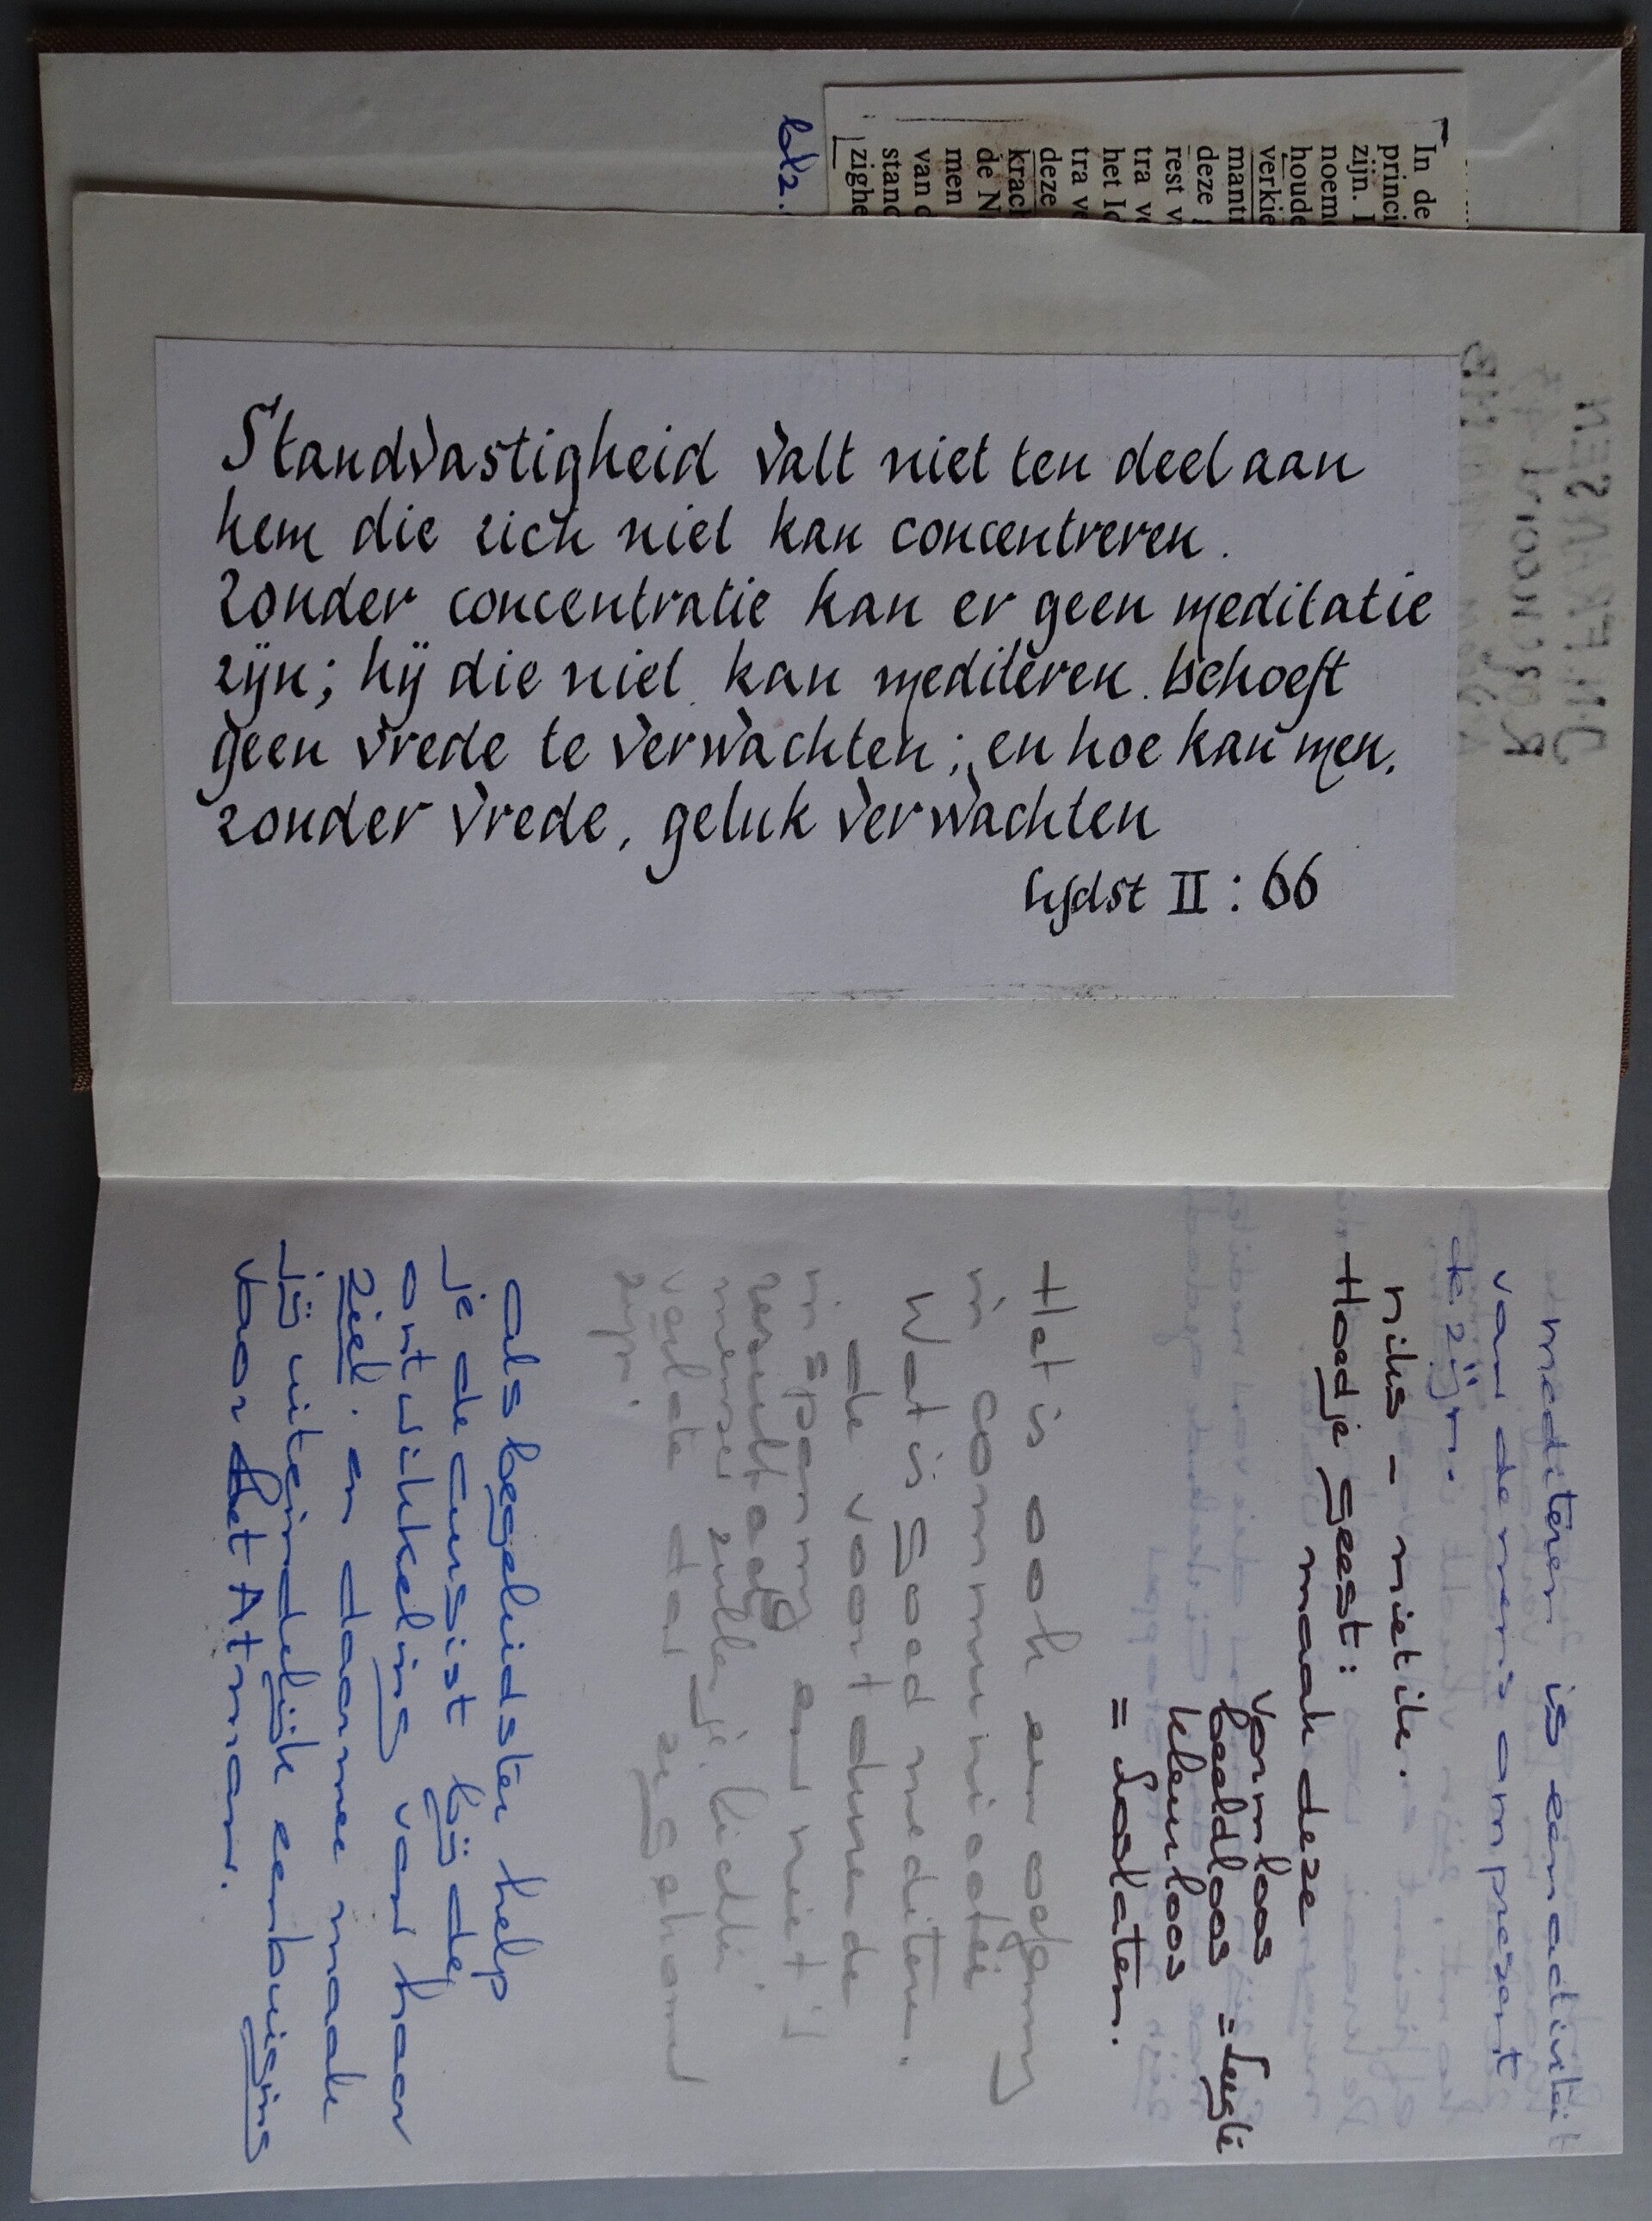 In de
princi
zijn. I
noem
houde
verkie
mantr
deze
rest v
tra ve
het Ic
tra ve
deze
krach
de N
men
van d
stand
zighe
blz.
Standvastigheid valt niet ten deel aan
hem die zich niet kan concentreren.
Zonder concentratie kan er geen meditatie
zijn; hij die niet kan mediteren behoeft
geen vrede te verwachten; en hoe kan men,
zonder vrede, geluk verwachten
hfdst II : 66
mediteren is een activiteit
van de mens om present
te zijn.
niks - nietik.
Hoedje geest:
maak deze
vormloos
beeldloos = Leegte
kleurloos
= Loslaten.
Het is ook een oefening
in communicatie
Wat is goed mediteren.
de voortdurende
inspanning en niet 't
resultaat
mensen zullen je
zijn.
als begeleidster help
je de cursist bij de
ontwikkeling van haar
ziel. en daarmee maak
jij uiteindelijk een buiging
voor het Atman.